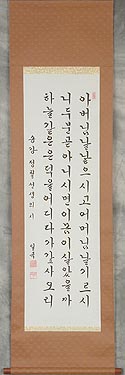 아버님날낳으시고어머님날기르시
니두분곧아니시면이몸이살았을까
하늘같은은덕을어디다가갚사오리
송강 정철 선생의 시